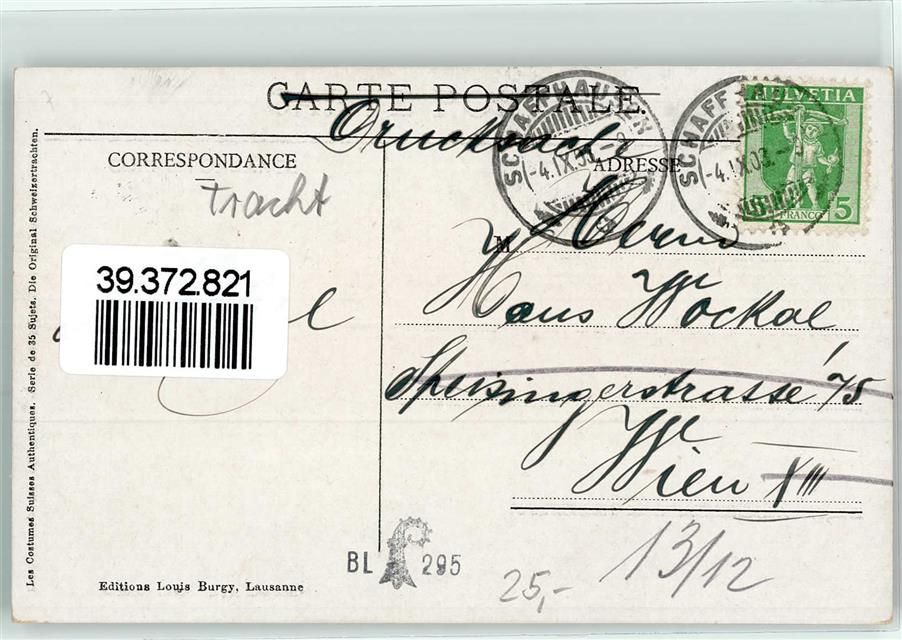 CARTE POSTALE
Drucksache
CORRESPONDANCE
ADRESSE
Tracht
SCHAFFHAUSEN
-4.IX.08.-
SCHAFFHAU
-4.IX.08.-
HELVETIA
FRANCO 5
39.372.821
M
Herrn
Hans Wockal
Speisingerstrasse 75
Wien XIII
Les Costumes Suisses Authentiques. Serie de 35 Sujets. Die Original Schweizertrachten.
BL 295
Editions Louis Burgy, Lausanne
25,-
13/12